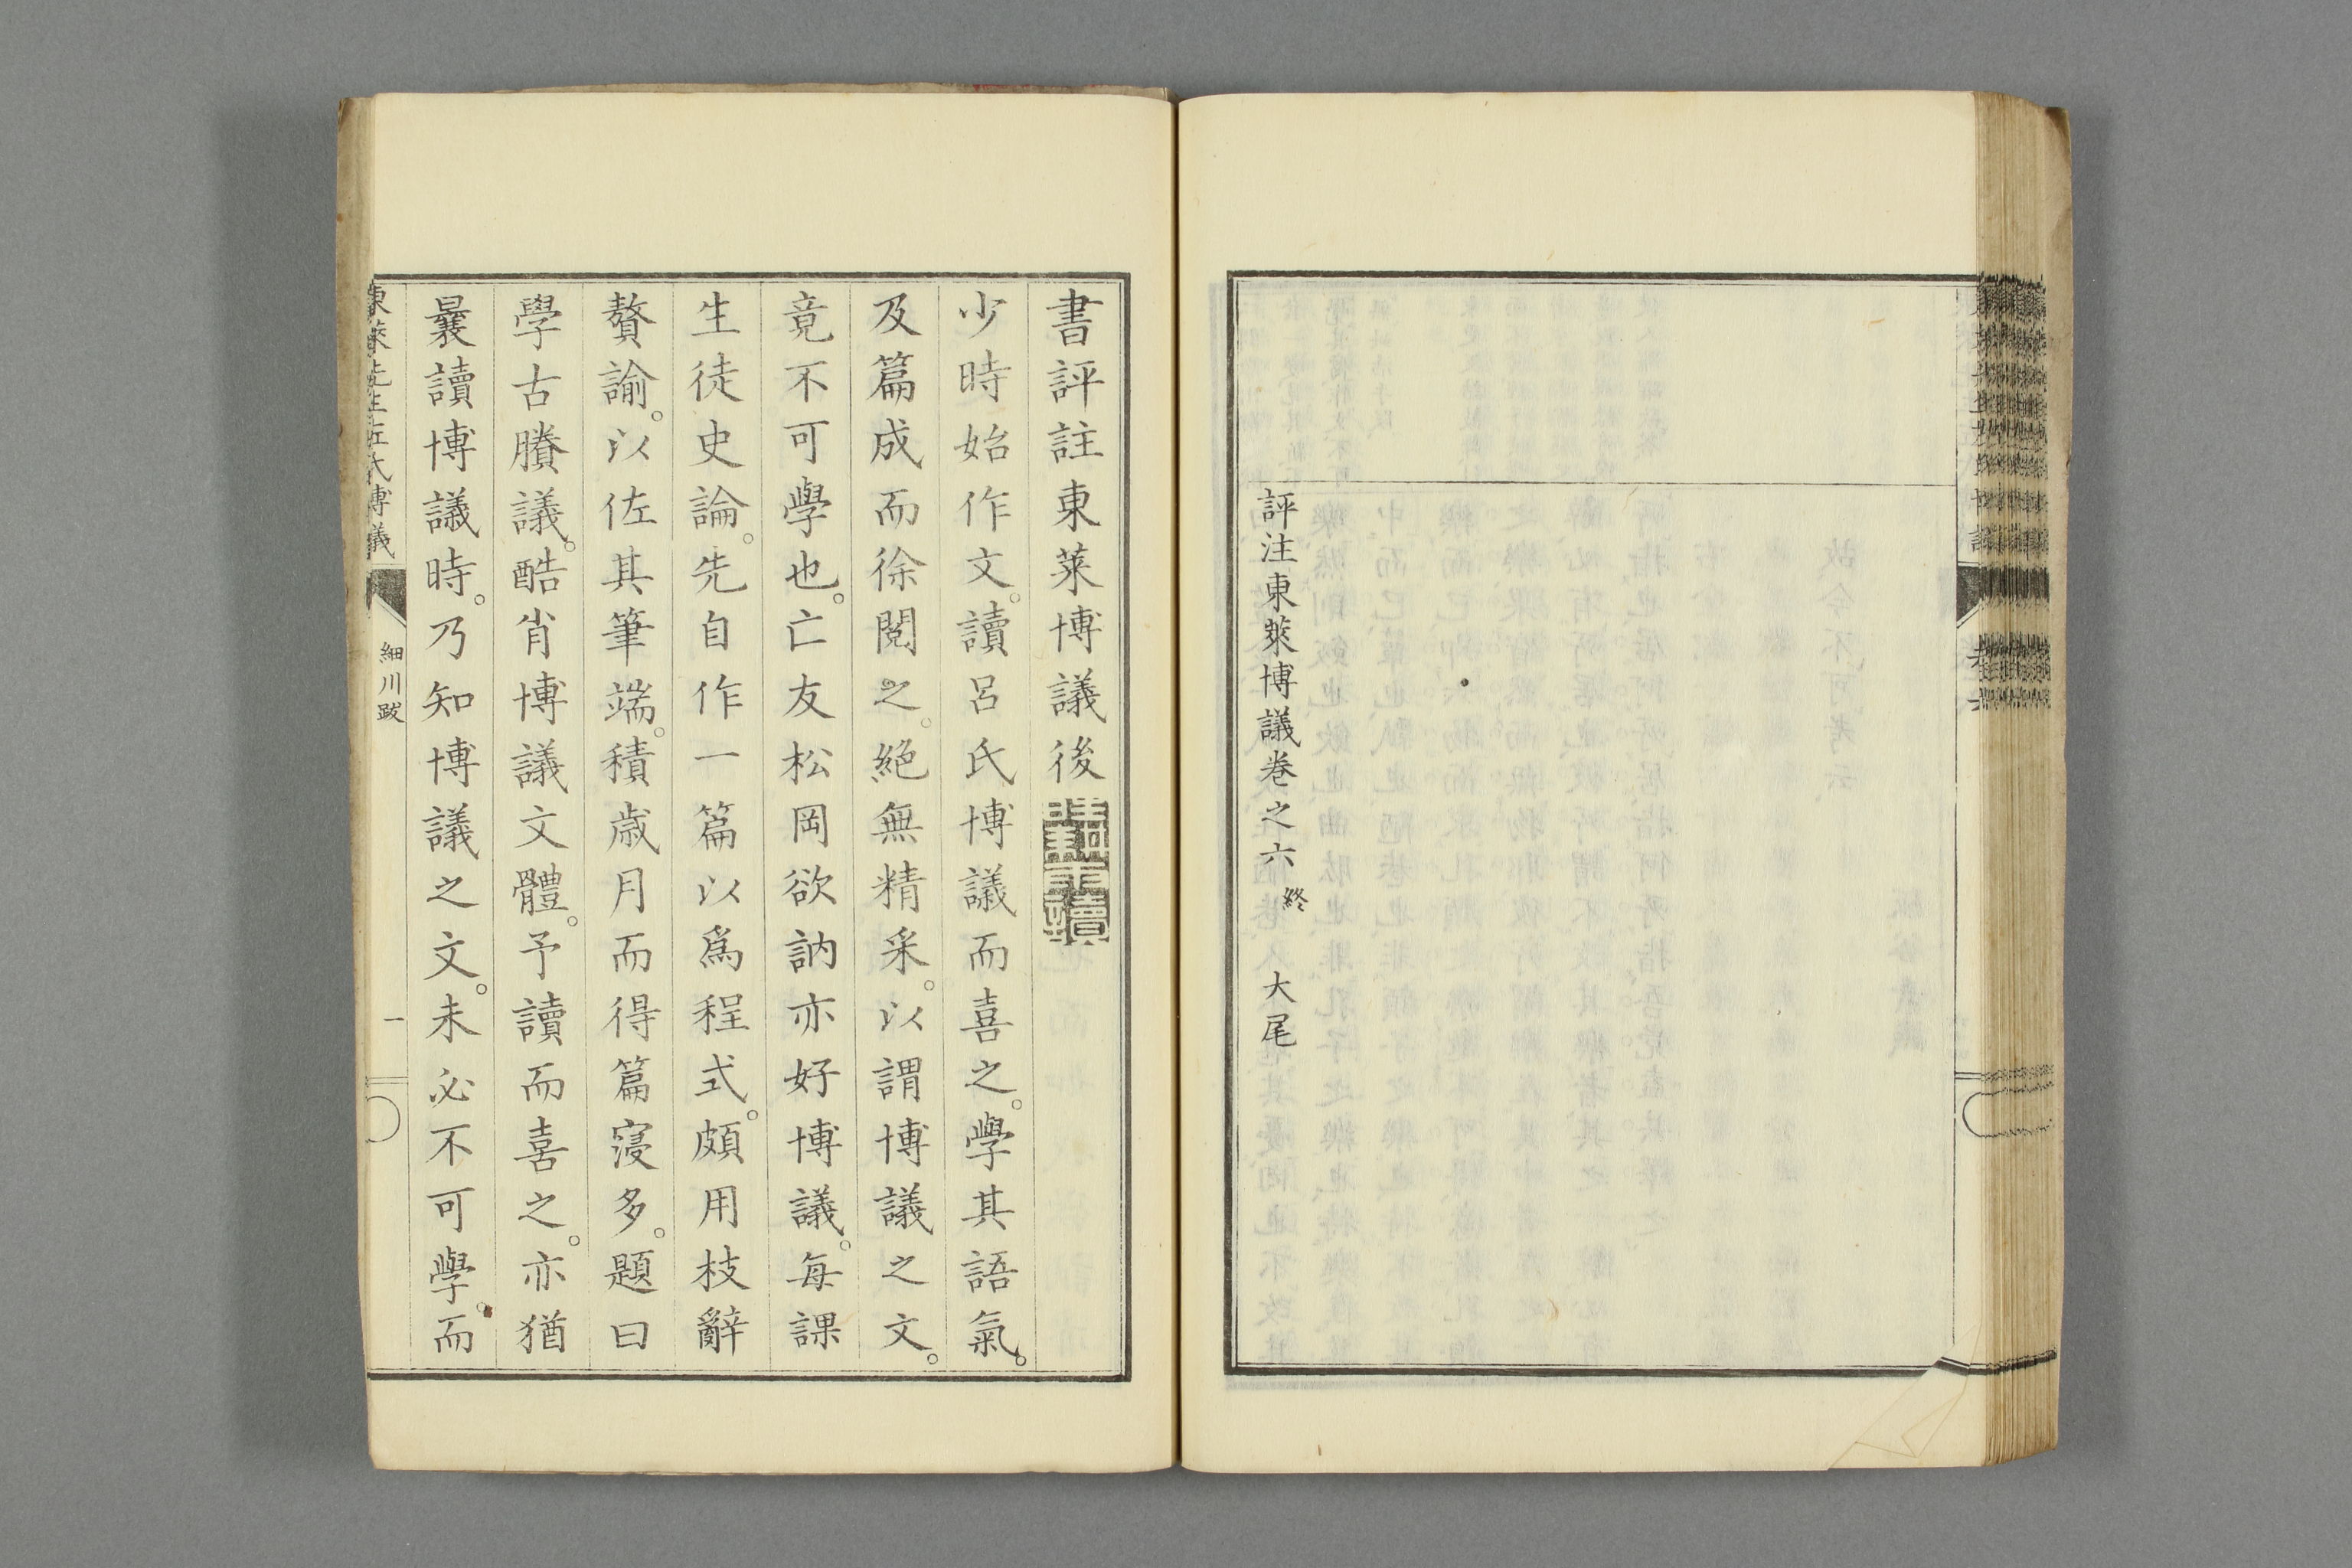 評注東萊博議卷之六終 大尾
書評註東萊博議後
少時始作文。讀呂氏博議而喜之。學其語氣。
及篇成而徐閱之。絕無精采。以謂博議之文。
竟不可學也。亡友松岡欲訥亦好博議。每課
生徒史論。先自作一篇以爲程式。頗用枝辭
贅諭。以佐其筆端。積歲月而得篇寖多。題曰
學古賸議。酷肖博議文體。予讀而喜之。亦猶
曩讀博議時。乃知博議之文。未必不可學。而
東萊先生左氏博議 細川跋 一